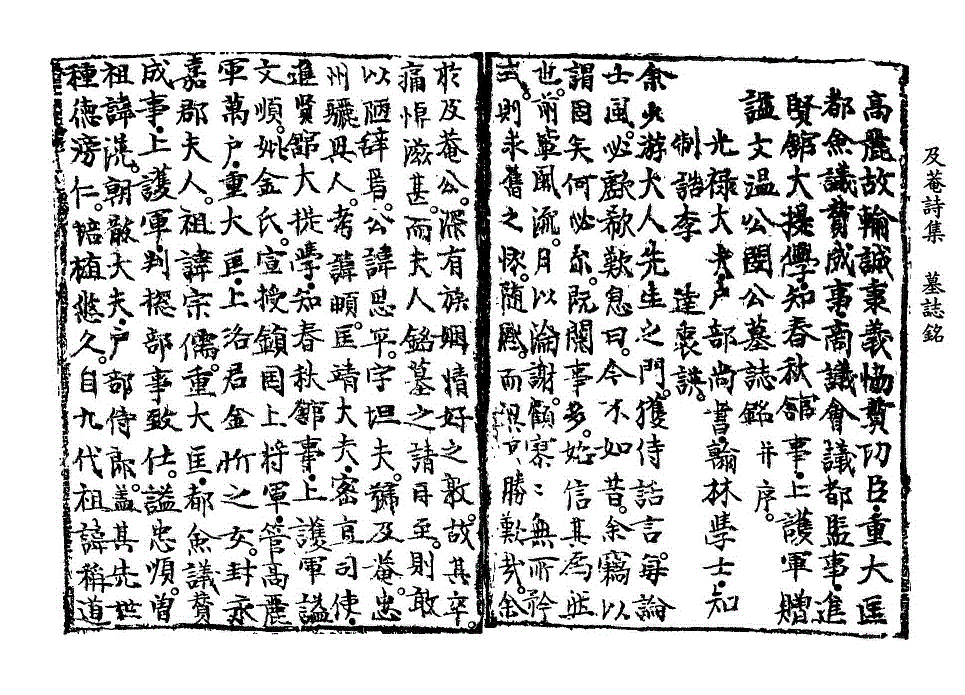 及菴詩集　墓誌銘
高麗故輸誠秉義恊贊功臣·重大匡
都僉議贊成事·商議會議都監事·進
賢館大提學·知春秋館事·上護軍贈
謚文温公閔公墓誌銘并序。
光禄大夫户部尚書·翰林學士·知
制誥李　達衷譔。
余少游大人先生之門。獲侍話言。每論
士風。必歔欷歎息曰。今不如昔。余竊以
謂固矣何必尔。既閱事多。始信其爲
也。前輩風流。日以淪謝。顧寥〻無所矜
式。則求舊之懷。随感而深。可勝歎哉。余
於及菴公。深有族姻情好之敦。故其卒。
痛悼滋甚。而夫人銘墓之請自至。則敢
以陋辞焉。公諱思平。字坦夫。號及菴。忠
州驪興人。考諱頔。匡靖大夫·密直司使·
進賢館大提學·知春秋館事·上護軍謚
文順。妣金氏。宣授鎮國上将軍·管高麗
軍萬户·重大匡·上洛君金忻之女。封永
嘉郡夫人。祖諱宗儒。重大匡·都僉議贊
成事·上護軍·判摠部事致仕。謚忠順。曾
祖諱滉。朝散大夫·户部侍郎。盖其先世
種德滂仁。培植悠久。自九代祖諱稱道